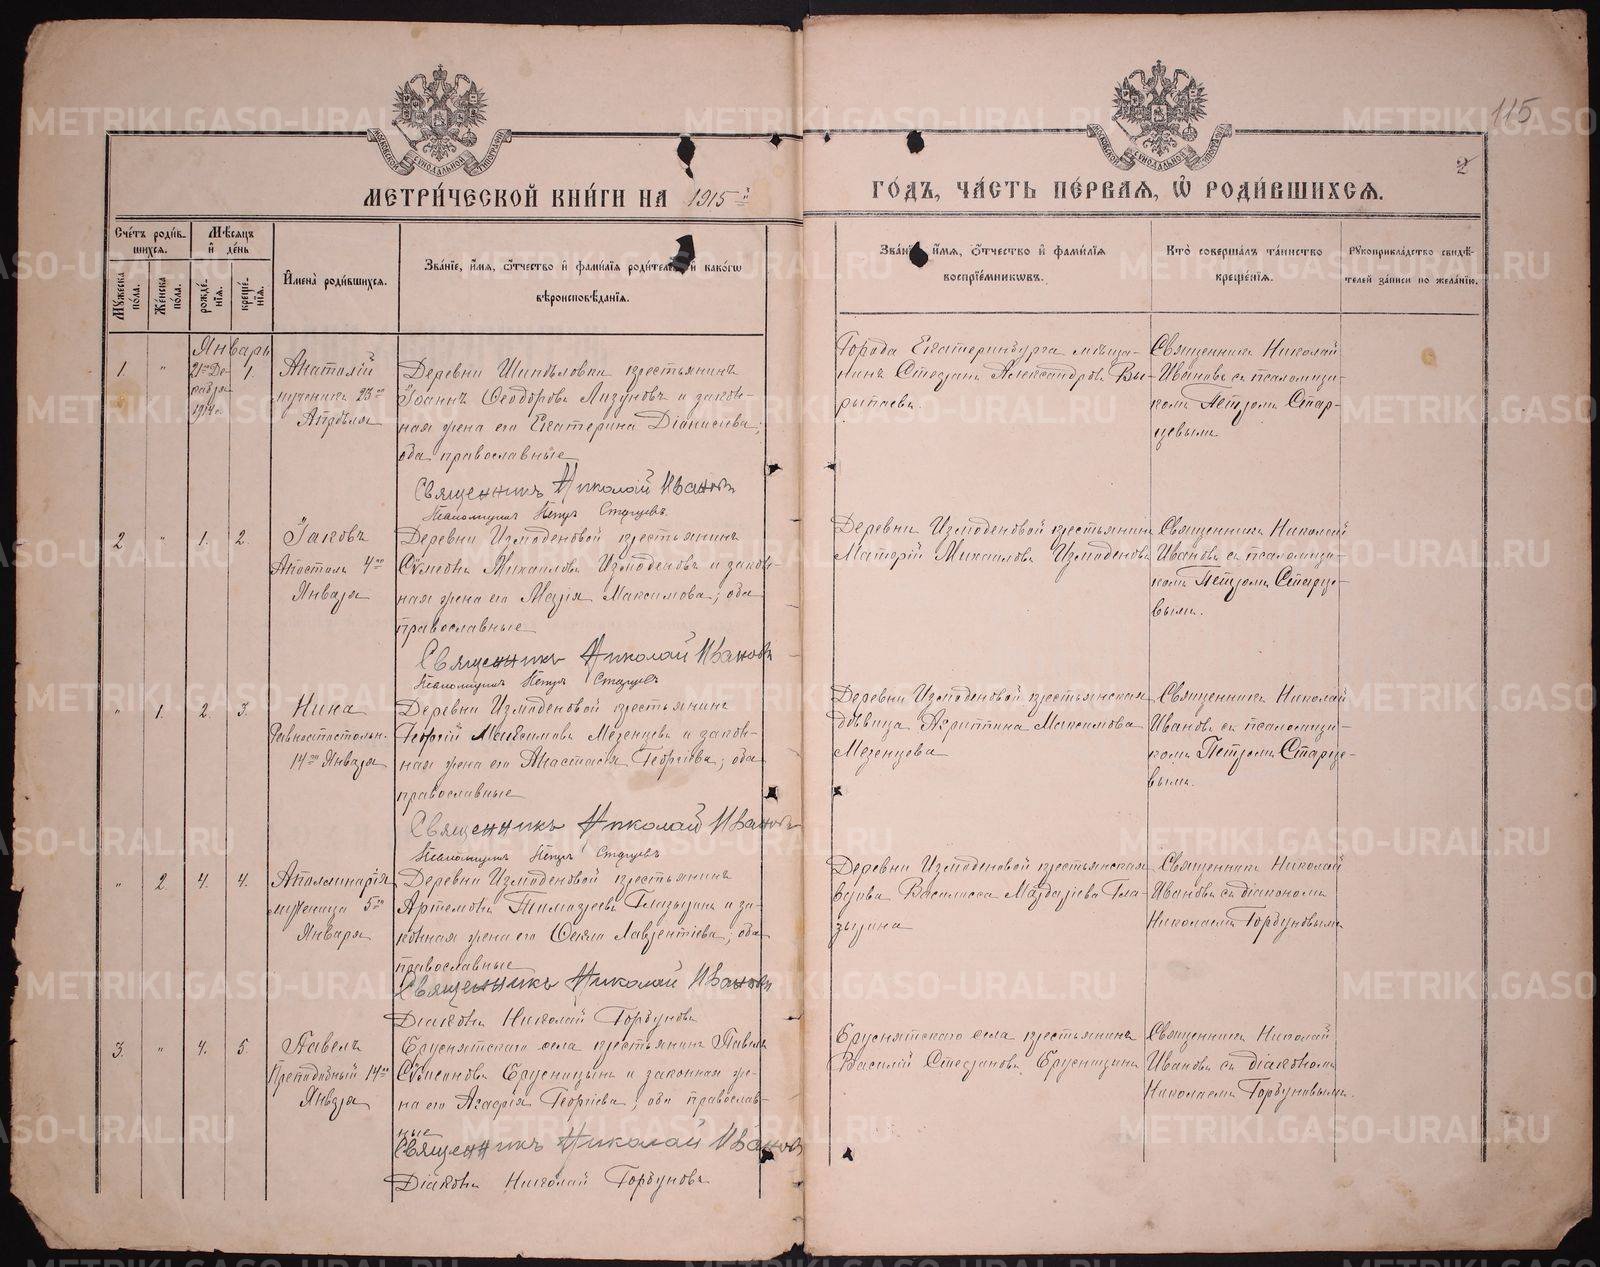 115
2
МЕТРИ́ЧЕСКОЙ КНИ́ГИ НА 1915й
ГО́ДЪ, ЧА́СТЬ ПЕ́РВАѦ, Ѽ РОДИ́ВШИХСѦ.
Сче́тъ роди́в-
шихсѧ.
Мꙋ́жеска по́ла.
Же́нска по́ла.
Мѣ́сѧцъ
и҆ де́нь
рожде́нїѧ.
креще́нїѧ.
И҆мена̀ роди́вшихсѧ.
Зва́нїе, и҆́мѧ, ѻ҆́тчество и҆ фами́лїѧ роди́телей и҆ како́гѡ
вѣроисповѣ́данїѧ.
Зва́нїе, и҆́мѧ, ѻ҆́тчество и҆ фами́лїѧ
воспрїе́мникѡвъ.
Кто̀ соверша́лъ та́инство
креще́нїѧ.
Рꙋкоприкла́дство свидѣ́-
телей за́писи по жела́нїю.
Январь
1.
"
21го Де-
кабря
1914 г.
1.
Анатолій
мученика 23го
Апрѣля
Деревни Шипѣловки крестьянинъ
Іоаннъ Ѳеодоровъ Лизуновъ и закон-
ная жена его Екатерина Діанисиева;
оба православные
Священникъ Николай Ивановъ
Псаломщикъ Петръ Старцевъ.
Города Екатеринбурга мѣща-
нинъ Стефанъ Александровъ Вы-
рыпаевъ.
Священникъ Николай
Ивановъ съ псаломщи-
комъ Петромъ Стар-
цевымъ
2
"
1.
2.
Іаковъ
Апостолъ 4го
Января
Деревни Измоденовой крестьянинъ
Сѵмеонъ Михаиловъ Измоденовъ и закон-
ная жена его Марія Максимова; оба
православные
Священникъ Николай Ивановъ
Псаломщикъ Петръ Старцевъ
Деревни Измоденовой крестьянинъ
Матфій Михаиловъ Измоденовъ
Священникъ Николай
Ивановъ съ псаломщи-
комъ Петромъ Старце-
вымъ.
"
1.
2.
3.
Нина
Равноапостольн.
14го Января
Деревни Измоденовой крестьянинъ
Георгій Максимовъ Мезенцевъ и закон-
ная жена его Анастасія Георгіева; оба
православные
Священникъ Николай Ивановъ
Псаломщикъ Петръ Старцевъ
Деревни Измоденовой крестьянская
дѣвица Агриппина Максимова
Мезенцова
Священникъ Николай
Ивановъ съ псаломщи-
комъ Петромъ Старце-
вымъ.
"
2.
4.
4.
Аполлинарія
мученица 5го
Января
Деревни Измоденовой крестьянинъ
Артемонъ Тимофеевъ Глазыринъ и за-
конная жена его Ѳекла Лаврентіева; оба
православные
Священникъ Николай Ивановъ
Діаконъ Николай Горбуновъ
Деревни Измоденовой крестьянская
вдова Василисса Мардаріева Гла-
зырина
Священникъ Николай
Ивановъ съ діакономъ
Николаемъ Горбуновымъ
3.
"
4.
5.
Павелъ
Преподобный 14го
Января
Бруснятскаго села крестьянинъ Павелъ
Сѵмеоновъ Брусницынъ и законная же-
на его Агафія Георгіева; оба православ-
ные
Священникъ Николай Ивановъ
Діаконъ Николай Горбуновъ
Бруснятскаго села крестьянинъ
Василій Стефановъ Брусницынъ
Священникъ Николай
Ивановъ съ діакономъ
Николаемъ Горбуновымъ.
METRIKI.GASO-URAL.RU